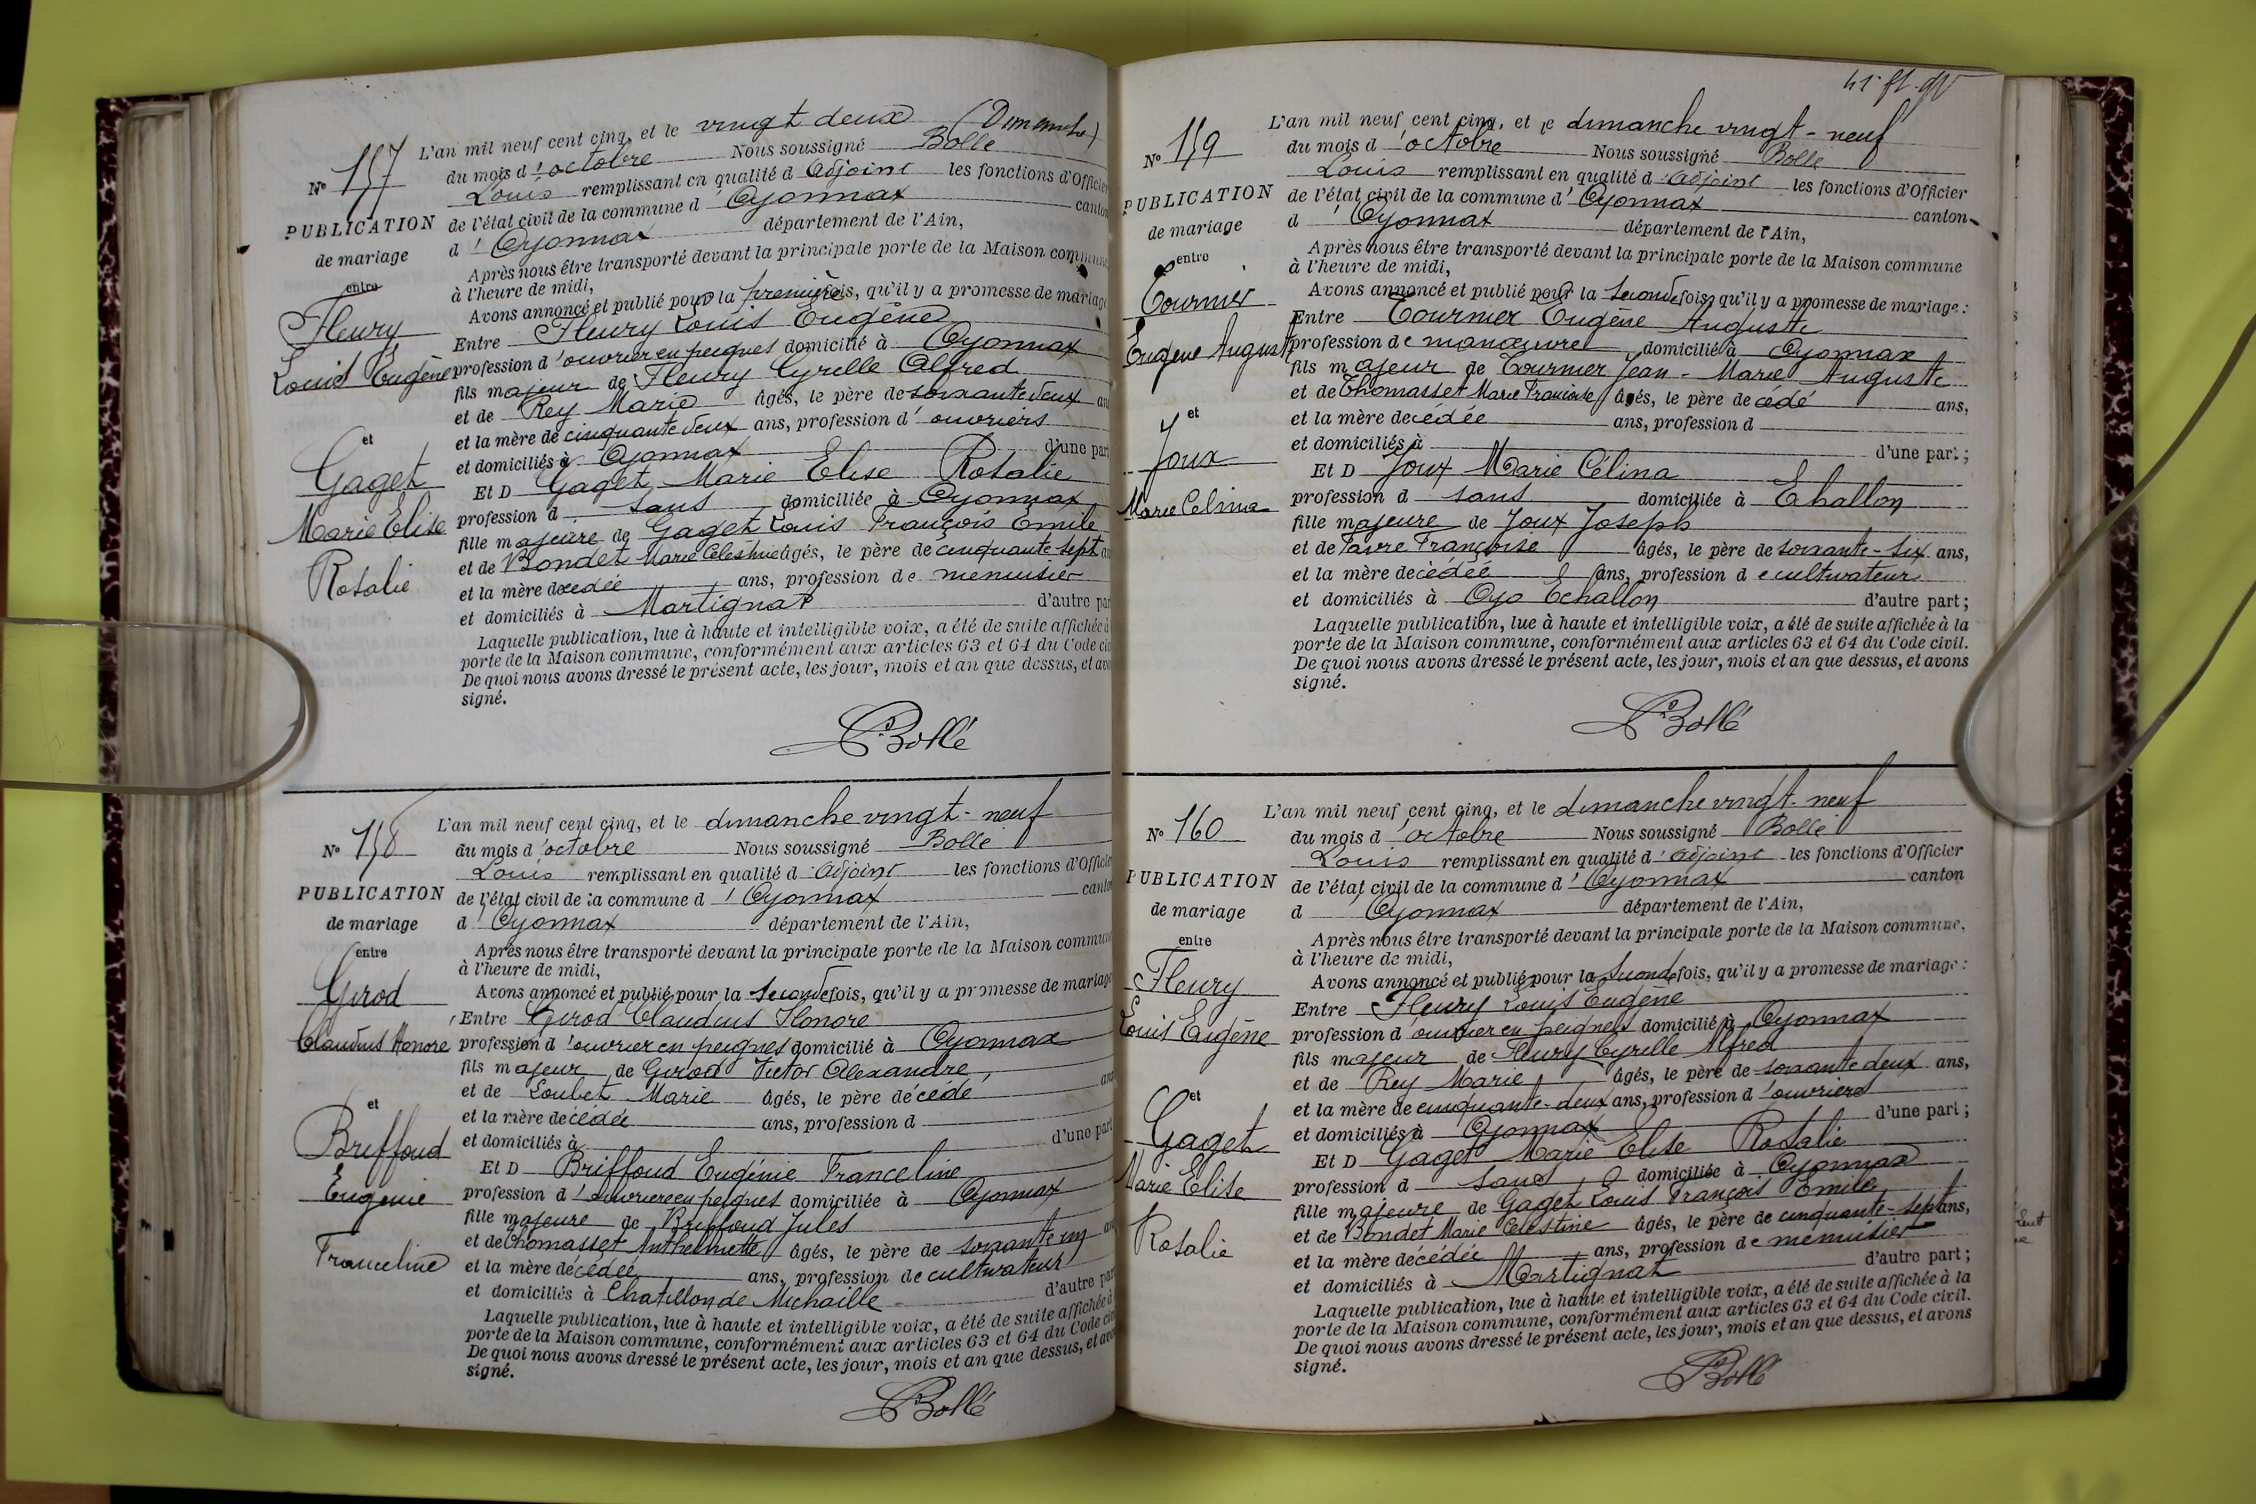 N° 157
PUBLICATION
de mariage
entre
Fleury
Louis Eugène
et
Gaget
Marie Elise
Rosalie
L'an mil neuf cent cinq, et le vingt deux (Dimanche)
du mois d'octobre Nous soussigné Bollé
Louis remplissant en qualité d'adjoint les fonctions d'Officier
de l'état civil de la commune d'Oyonnax canton
d'Oyonnax département de l'Ain,
Après nous être transporté devant la principale porte de la Maison commune
à l'heure de midi,
Avons annoncé et publié pour la première fois, qu'il y a promesse de mariage
Entre Fleury Louis Eugène
profession d'ouvrier en peignes domicilié à Oyonnax
fils majeur de Fleury Cyrelle Alfred
et de Rey Marie âgés, le père de soixante deux an
et la mère de cinquante deux ans, profession d'ouvriers
et domiciliés à Oyonnax d'une part
Et D Gaget Marie Elise Rosalie
profession d sans domiciliée à Oyonnax
fille majeure de Gaget Louis François Emile
et de Bondet Marie Célestine âgés, le père de cinquante sept an
et la mère décédée ans, profession de menuisier
et domiciliés à Martignat d'autre par
Laquelle publication, lue à haute et intelligible voix, a été de suite affichée à
porte de la Maison commune, conformément aux articles 63 et 64 du Code civ
De quoi nous avons dressé le présent acte, les jour, mois et an que dessus, et avo
signé.
Bollé
N° 158
PUBLICATION
de mariage
entre
Girod
Claudius Honoré
et
Briffoud
Eugenie
Franceline
L'an mil neuf cent cinq, et le dimanche vingt-neuf
du mois d'octobre Nous soussigné Bollé
Louis remplissant en qualité d'adjoint les fonctions d'Officie
de l'état civil de la commune d'Oyonnax canto
d'Oyonnax département de l'Ain,
Après nous être transporté devant la principale porte de la Maison commune
à l'heure de midi,
Avons annoncé et publié pour la seconde fois, qu'il y a promesse de mariage
Entre Girod Claudius Honoré
profession d'ouvrier en peignes domicilié à Oyonnax
fils majeur de Girod Victor Alexandre
et de Loubet Marie âgés, le père décédé ans
et la mère décédée ans, profession d
et domiciliés à d'une part
Et D Briffoud Eugénie Franceline
profession d'ouvrière en peignes domiciliée à Oyonnax
fille majeure de Briffoud Jules
et de Thomasset Anthelmette âgés, le père de soixante un an
et la mère décédée ans, profession de cultivateur
et domiciliés à Chatillon de Michaille d'autre par
Laquelle publication, lue à haute et intelligible voix, a été de suite affichée à
porte de la Maison commune, conformément aux articles 63 et 64 du Code civ
De quoi nous avons dressé le présent acte, les jour, mois et an que dessus, et avo
signé.
Bollé
N° 159
PUBLICATION
de mariage
entre
Tournier
Eugène Auguste
et
Joux
Marie Celina
L'an mil neuf cent cinq, et le dimanche vingt-neuf
du mois d'octobre Nous soussigné Bollé
Louis remplissant en qualité d'adjoint les fonctions d'Officier
de l'état civil de la commune d'Oyonnax canton
d'Oyonnax département de l'Ain,
Après nous être transporté devant la principale porte de la Maison commune
à l'heure de midi,
Avons annoncé et publié pour la seconde fois, qu'il y a promesse de mariage :
Entre Tournier Eugène Auguste
profession de manœuvre domicilié à Oyonnax
fils majeur de Tournier Jean-Marie Auguste
et de Thomasset Marie Françoise âgés, le père decedé ans,
et la mère decédée ans, profession d
et domiciliés à d'une part ;
Et D Joux Marie Célina
profession d sans domiciliée à Echallon
fille majeure de Joux Joseph
et de Favre Françoise âgés, le père de soixante-six ans,
et la mère decédée ans, profession de cultivateur
et domiciliés à Oyo Echallon d'autre part ;
Laquelle publication, lue à haute et intelligible voix, a été de suite affichée à la
porte de la Maison commune, conformément aux articles 63 et 64 du Code civil.
De quoi nous avons dressé le présent acte, les jour, mois et an que dessus, et avons
signé.
Bollé
N° 160
PUBLICATION
de mariage
entre
Fleury
Louis Eugène
et
Gaget
Marie Elise
Rosalie
L'an mil neuf cent cinq, et le dimanche vingt-neuf
du mois d'octobre Nous soussigné Bollé
Louis remplissant en qualité d'adjoint les fonctions d'Officier
de l'état civil de la commune d'Oyonnax canton
d Oyonnax département de l'Ain,
Après nous être transporté devant la principale porte de la Maison commune,
à l'heure de midi,
Avons annoncé et publié pour la seconde fois, qu'il y a promesse de mariage :
Entre Fleury Louis Eugène
profession d'ouvrier en peignes domicilié à Oyonnax
fils majeur de Fleury Cyrelle Alfred
et de Rey Marie âgés, le père de soixante deux ans,
et la mère de cinquante-deux ans, profession d'ouvriers
et domiciliés à Oyonnax d'une part ;
Et D Gaget Marie Elise Rosalie
profession d sans domiciliée à Oyonnax
fille majeure de Gaget Louis François Emile
et de Bondet Marie Celestine âgés, le père de cinquante-sept ans,
et la mère décédée ans, profession de menuisier
et domiciliés à Martignat d'autre part ;
Laquelle publication, lue à haute et intelligible voix, a été de suite affichée à la
porte de la Maison commune, conformément aux articles 63 et 64 du Code civil.
De quoi nous avons dressé le présent acte, les jour, mois et an que dessus, et avons
signé.
Bollé